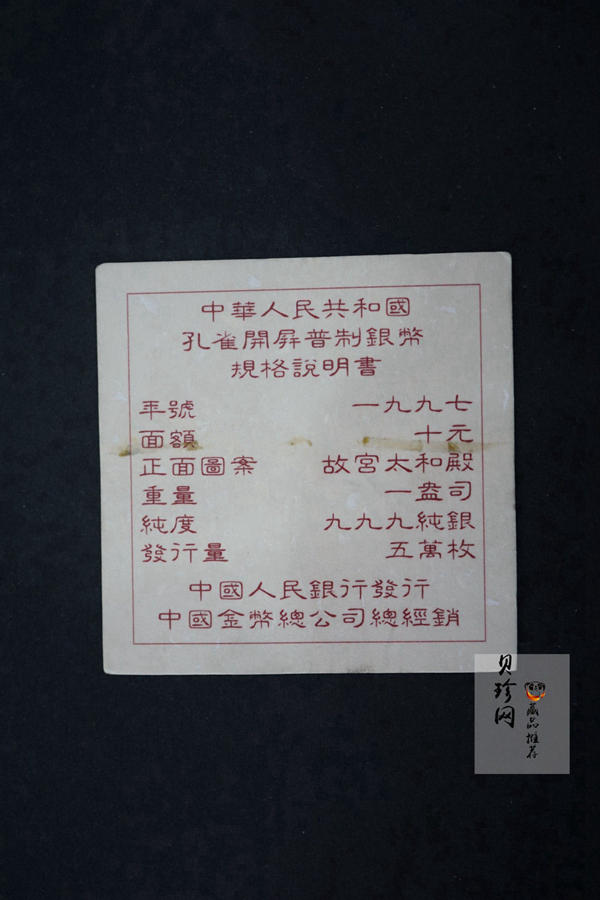 中華人民共和國
孔雀開屏普制銀幣
規格說明書
年號 一九九七
面額 十元
正面圖案 故宮太和殿
重量 一盎司
純度 九九九純銀
發行量 五萬枚
中國人民銀行發行
中國金幣總公司總經銷
贝珍网
藏品推荐